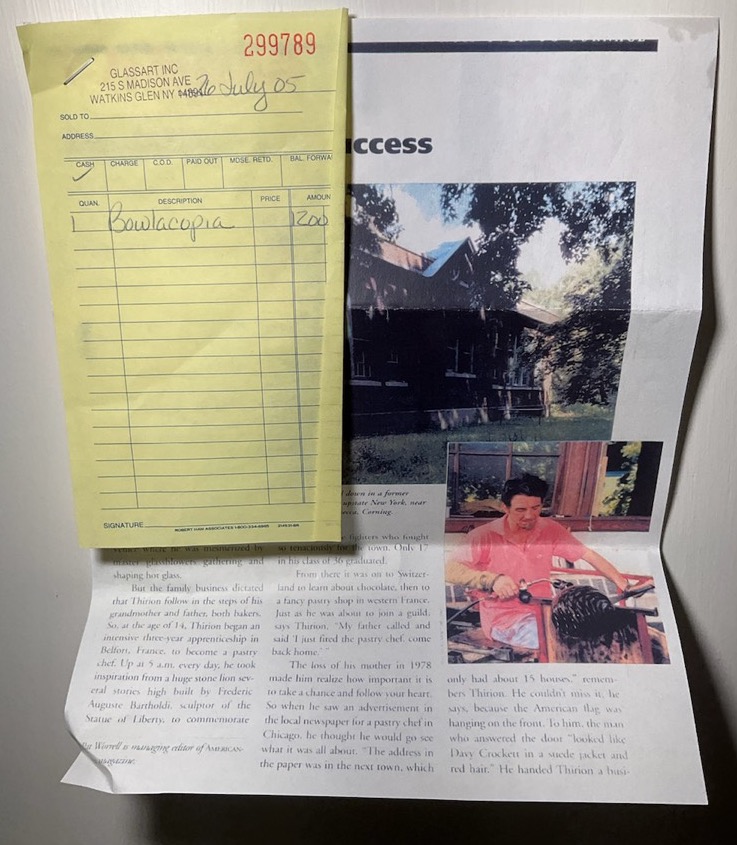 299789
GLASSART INC
215 S MADISON AVE
WATKINS GLEN NY 14891
26 July 05
SOLD TO
ADDRESS
CASH CHARGE C.O.D. PAID OUT MDSE. RETD. BAL. FORWA
QUAN. DESCRIPTION PRICE AMOUN
1 Bowlacopia 1200
SIGNATURE
ccess
down in a former
upstate New York, near
Corning.
venice where he was mesmerized by
master glassblowers gathering and
shaping hot glass.
But the family business dictated
that Thirion follow in the steps of his
grandmother and father, both bakers.
So, at the age of 14, Thirion began an
intensive three-year apprenticeship in
Belfort, France, to become a pastry
chef. Up at 5 a.m. every day, he took
inspiration from a huge stone lion sev-
eral stories high built by Frederic
Auguste Bartholdi, sculptor of the
Statue of Liberty, to commemorate
Worrell is managing editor of AMERICAN
magazine.
fighters who fought
so tenaciously for the town. Only 17
in his class of 36 graduated.
From there it was on to Switzer-
land to learn about chocolate, then to
a fancy pastry shop in western France.
Just as he was about to join a guild,
says Thirion, "My father called and
said 'I just fired the pastry chef, come
back home.'"
The loss of his mother in 1978
made him realize how important it is
to take a chance and follow your heart.
So when he saw an advertisement in
the local newspaper for a pastry chef in
Chicago, he thought he would go see
what it was all about. "The address in
the paper was in the next town, which
only had about 15 houses," remem-
bers Thirion. He couldn't miss it, he
says, because the American flag was
hanging on the front. To him, the man
who answered the door "looked like
Davy Crockett in a suede jacket and
red hair." He handed Thirion a busi-